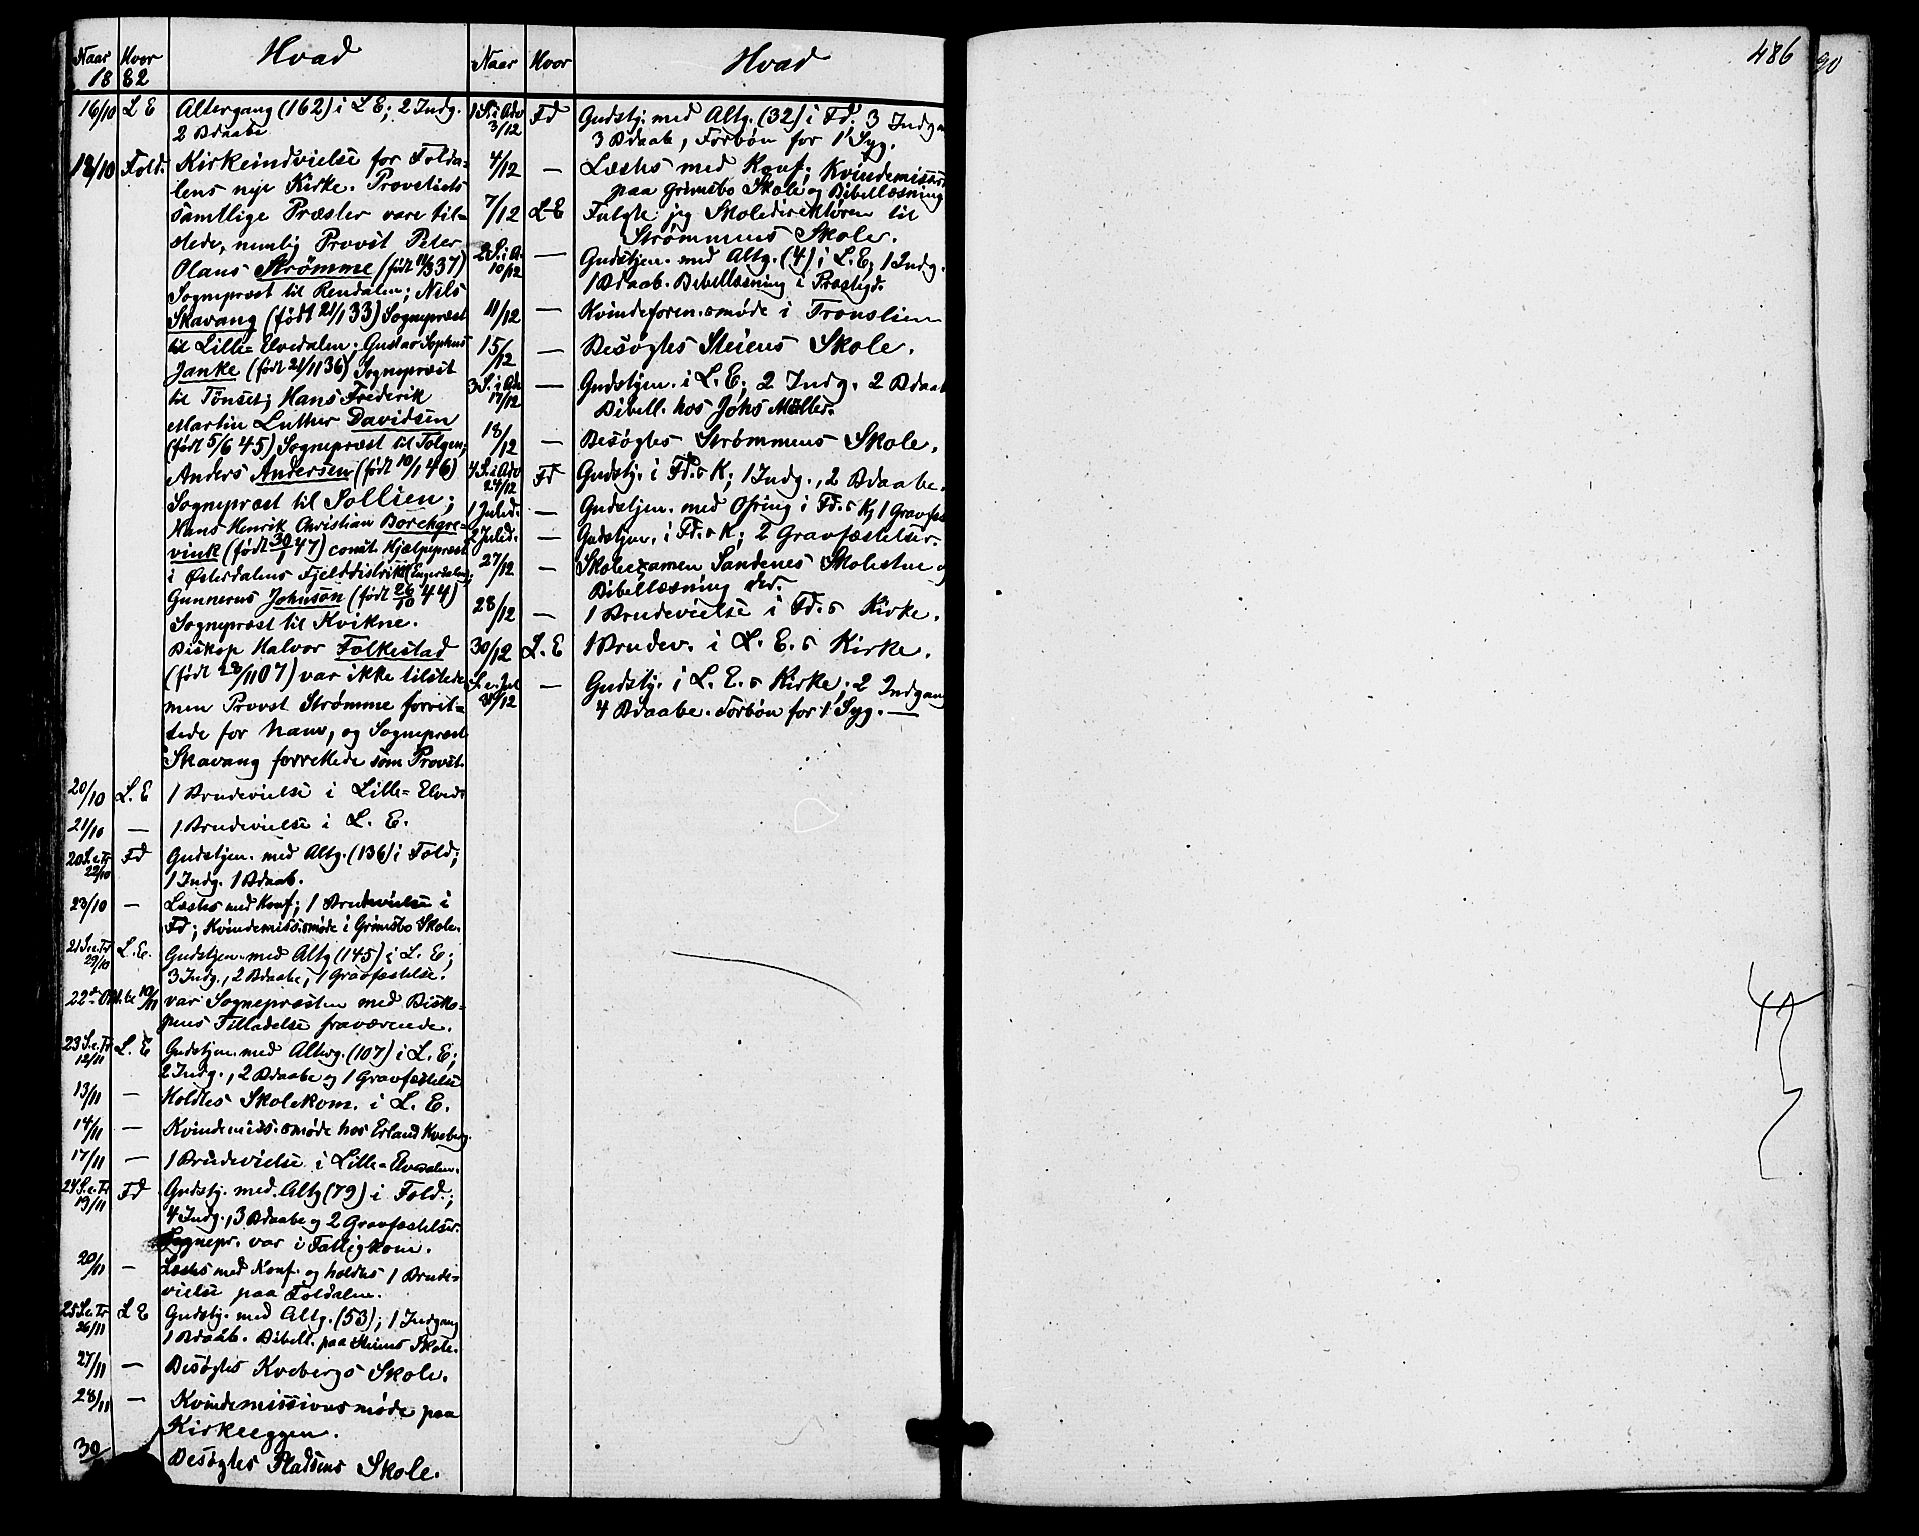 Naar Hvor Hvad
18 82
16/10 L E Altergang (162) i L E; 2 Indg.
2 Bdaabe
18/10 Fold. Kirkeindvielse for Folda-
lens nye Kirke. Provstiets
samtlige Præster vare til-
stede, nemlig Provst Peter
Olaus Strømme (født 11/3 37)
Sognepræst til Rendalen; Nils
Skavang (født 21/1 33) Sognepræst
til Lille-Elvedalen; Gustav Sophus
Janke (født 21/11 36) Sognepræst
til Tönset; Hans Frederik
Martin Luther Davidsen
(født 5/6 45) Sognepræst til Tolgen;
Anders Andersen (født 10/1 46)
Sognepræst til Sollien;
Hans Henrik Christian Borchgre-
vink (født 30/1 47) const. Hjælpepræst
i Østerdalens Fjelddistrikt (Engerdalen;
Gunnerus Johnson (født 26/10 44)
Sognepræst til Kvikne.
Biskop Halvor Folkestad
(født 28/11 07) var ikke tilstede
men Provst Strømme forret-
tede for ham, og Sognepræst
Skavang forrettede som Provst.
20/10 L. E 1 Brudevielse i Lille-Elved.
21/10 — 1 Brudevielse i L. E.
20 S. e. Tr 22/10 Fd Gudstjen. med Altg. (136) i Fold;
1 Indg. 1 Bdaab.
23/10 — Læstes med Konf; 1 Brudevielse i
Fd; Kvindemiss.møde i Grimsbo Skole.
21 S. e. Tr 29/10 L. E. Gudstjen. med Altg (145) i L. E;
3 Indg., 2 Bdaabe, 1 Gravfæstelse.
var Sognepræsten med Bisko-
pens Tilladelse fraværende.
23 S. e. Tr 12/11 L. E Gudstjen. med Alterg. (107) i L. E;
2 Indg., 2 Bdaabe og 1 Gravfæstelse
13/11 — Holdtes Skolekom. i L. E.
14/11 — Kvindemiss.møde hos Erland Kveberg.
17/11 — 1 Brudevielse i Lille-Elvedalen.
24 S. e. Tr 19/11 Fd Gudstj. med Altg (79) i Fold.;
4 Indg., 3 Bdaabe og 2 Gravfæstelser.
Sognepr. var i Fattigkom.
20/11 — Læstes med Konf. og holdtes 1 Brude-
vielse paa Foldalen.
25 S. e. Tr 26/11 L E Gudstj. med Altg. (53); 1 Indgang
1 Bdaab. Bibell. paa Steiens Skole.
27/11 — Besøgtes Kvebergs Skole.
28/11 — Kvindemissionsmøde paa
Kirkeeggen.
30 Besøgtes Pladsens Skole.
Naar Hvor Hvad
1 S. i Adv 3/12 Fd Gudstj. med Altg. (32) i Fd. 3 Indgan
3 Bdaab, Forbøn for 1 Syg.
4/12 — Læstes med Konf; Kvindemissn
paa Grimsbo Skole og Bibellæsning
7/12 L E Fulgte jeg Skoledirektøren til
Strømmens Skole.
2 S. i A. 10/12 — Gudstjen. med Altg. (4) i L. E, 1 Indg.
1 Bdaab. Bibellæsning i Præstegd.
11/12 — Kvindeforen.smøde i Tronslien
15/12 — Besøgtes Steiens Skole.
3 S. i Adv 17/12 — Gudstjen. i L. E; 2 Indg. 2 Bdaab
Bibell. hos Johs Møller.
18/12 — Besøgtes Strømmens Skole.
4 S. i Adv 24/12 Fd Gudstj. i Fd.s K; 1 Indg., 2 Bdaabe.
1 Juled. — Gudstjen. med Ofring i Fd.s K, 1 Gravfæs
2 Juled. — Gudstjen. i Fd.s K; 2 Gravfæstelser.
27/12 — Skoleexamen Sandenes Skolestue og
Bibellæsning der.
28/12 — 1 Brudevielse i Fd.s Kirke.
30/12 L. E 1 Brudev. i L. E.s Kirke.
S. e. Jul 31/12 — Gudstj. i L. E.s Kirke; 2 Indgang
4 Bdaabe. Forbøn for 1 Syg. —
486
90